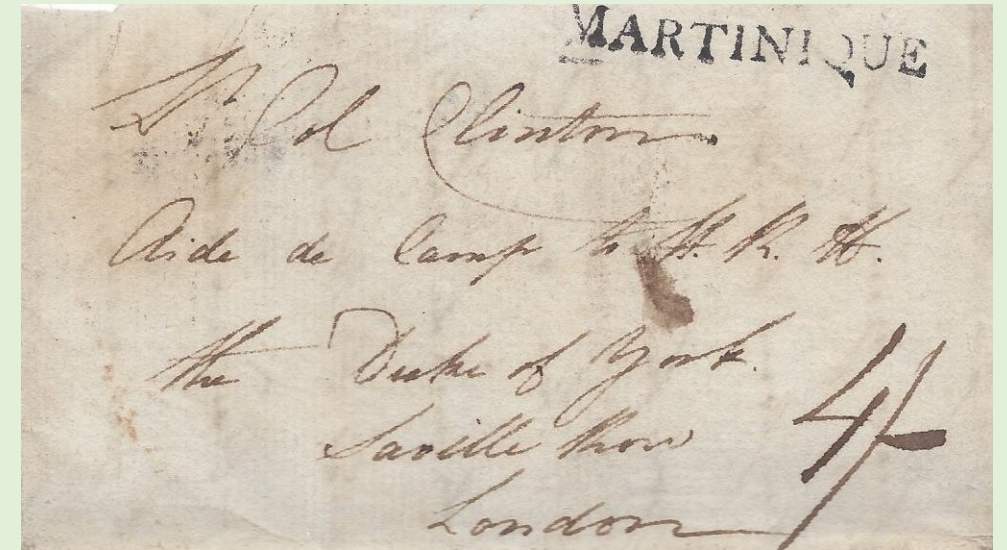 MARTINIQUE
Lt Col Clinton
Aide de Camp to H. R. H.
the Duke of York.
Saville Row
London
4/-